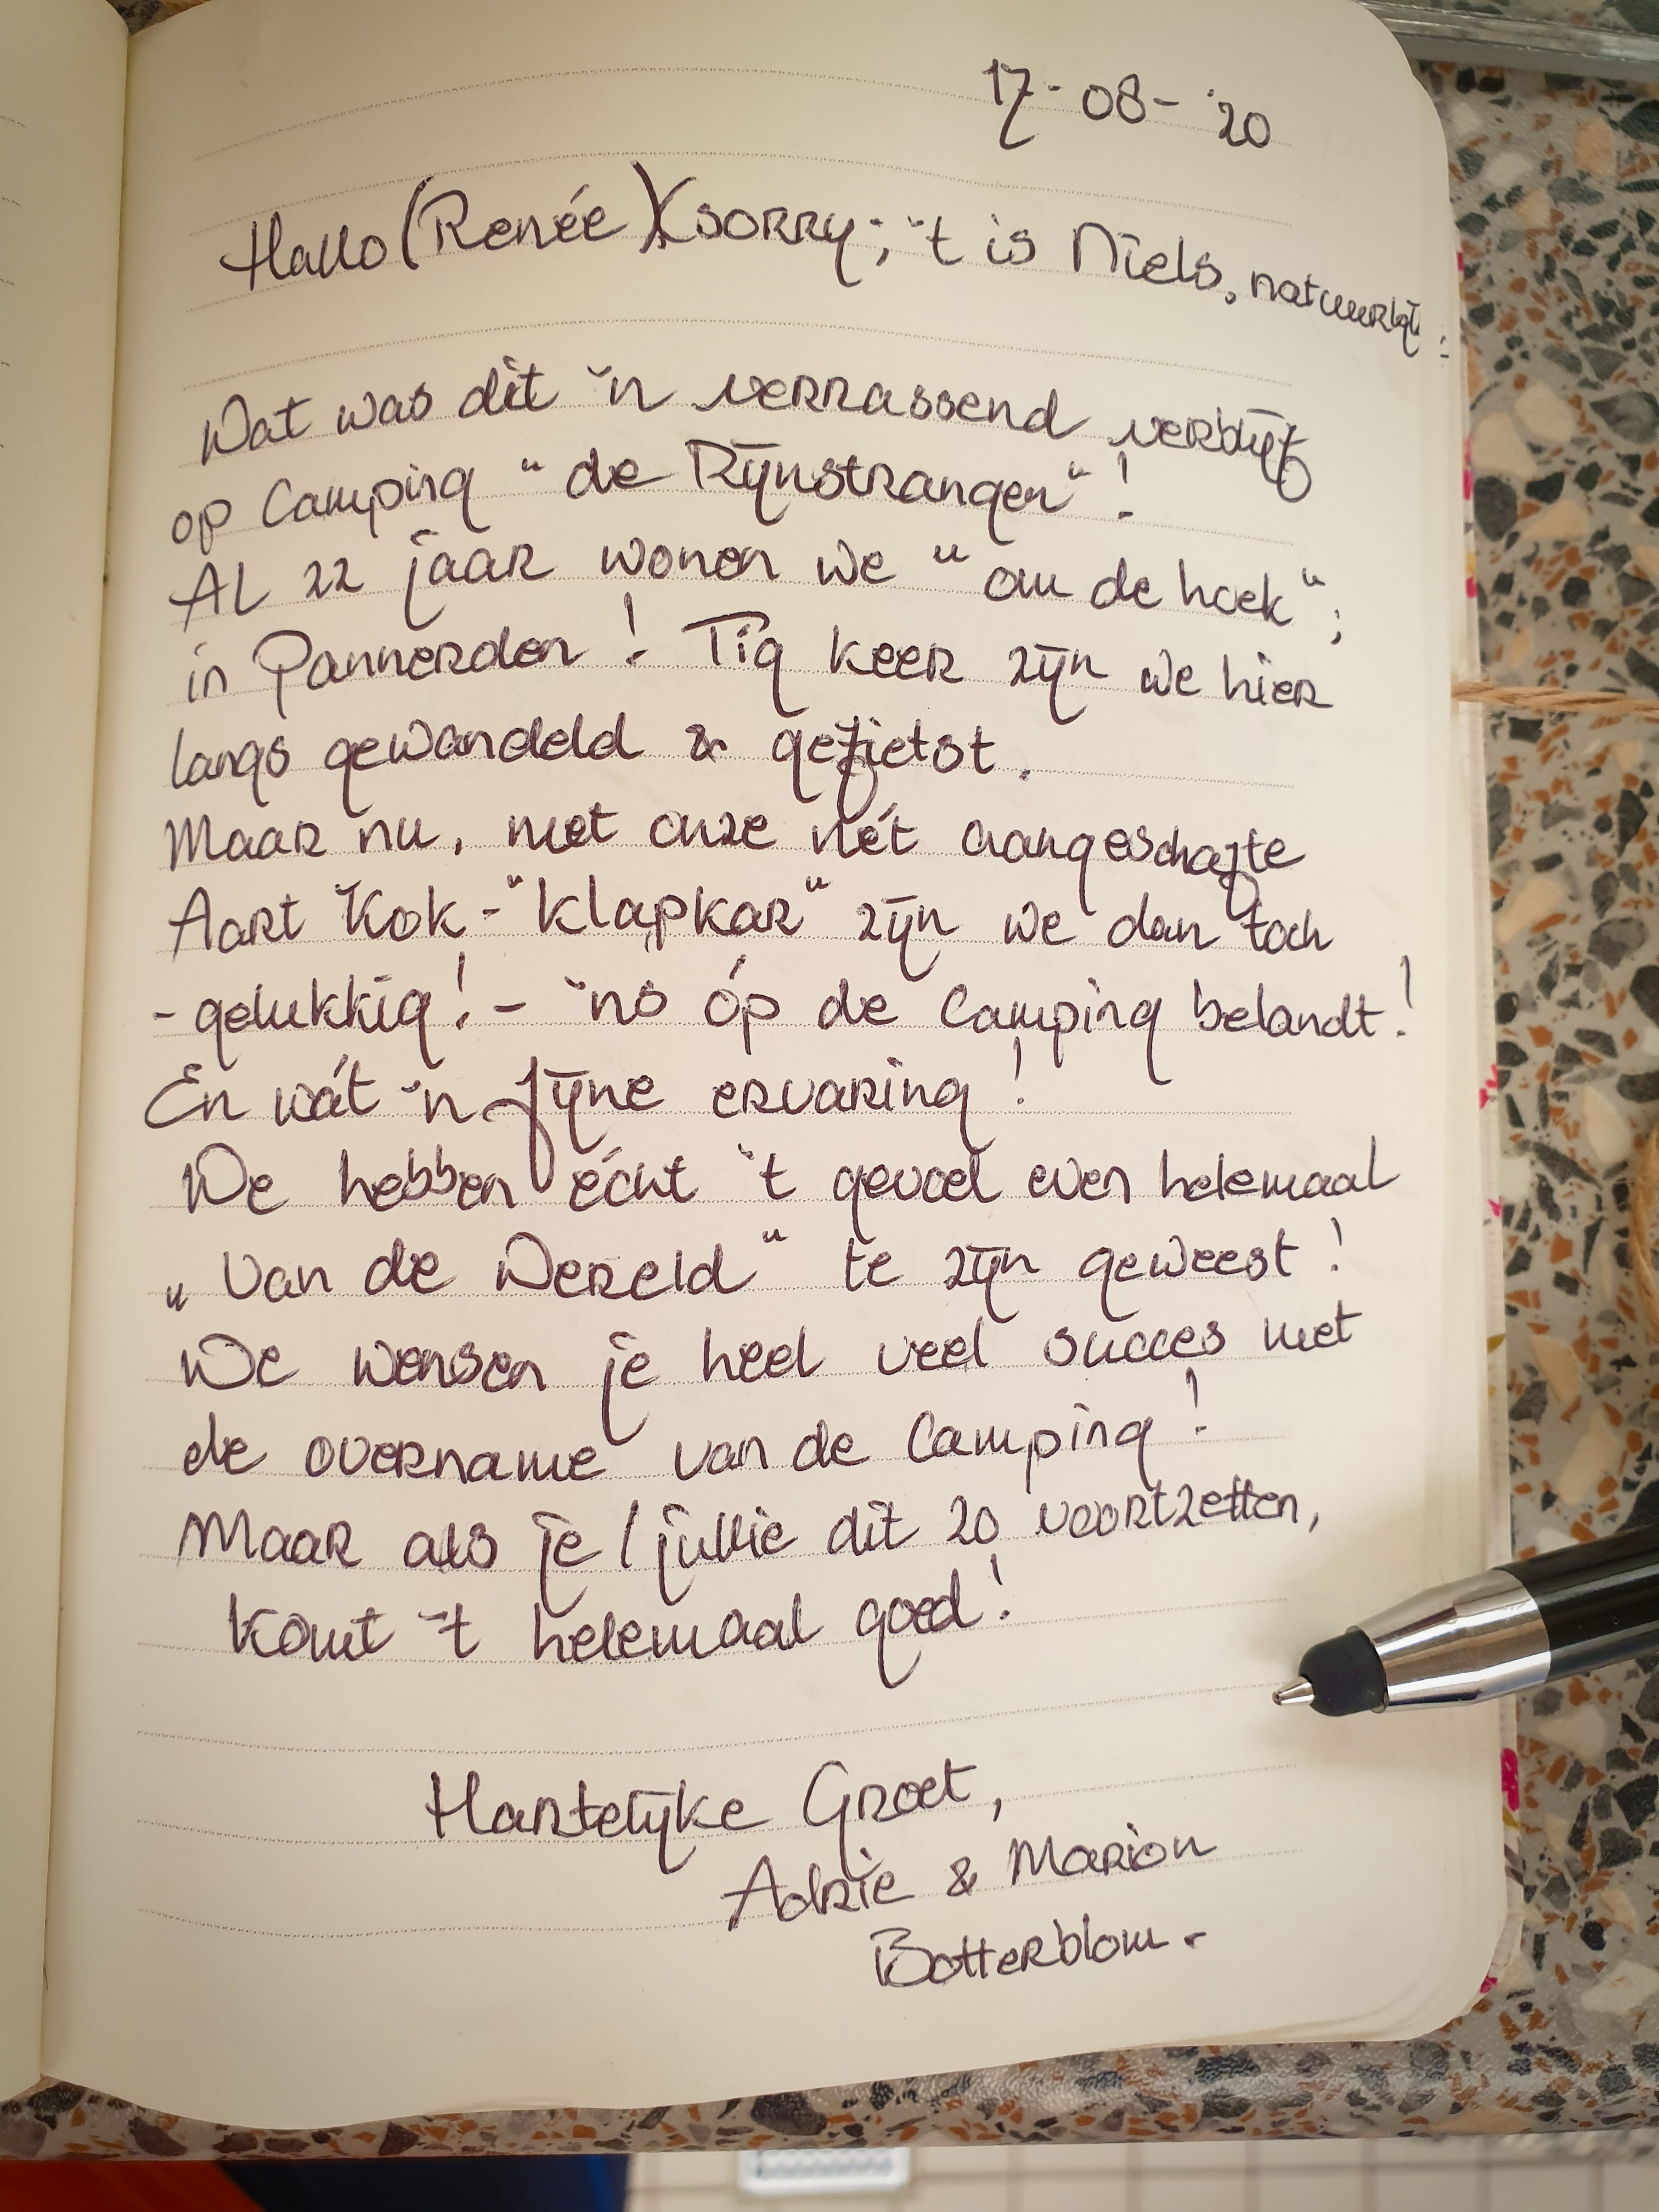 17-08-'20
Hallo (Renée) (sorry; 't is Niels, natuurlijk
Wat was dit 'n verrassend verblijf
op Camping "de Rijnstrangen"!
Al 22 jaar wonen we "om de hoek";
in Pannerden! Tig keer zijn we hier
langs gewandeld & gefietst.
Maar nu, met onze nét aangeschafte
Aart Kok-"Klapkar" zijn we dan toch
-gelukkig!- 'ns óp de Camping belandt!
En wát 'n fijne ervaring!
We hebben écht 't gevoel even helemaal
"Van de Wereld" te zijn geweest!
We wensen je heel veel succes met
de overname van de Camping!
Maar als je / jullie dit zo voortzetten,
komt 't helemaal goed!
Hartelijke Groet,
Adrie & Marion
Botterblom.